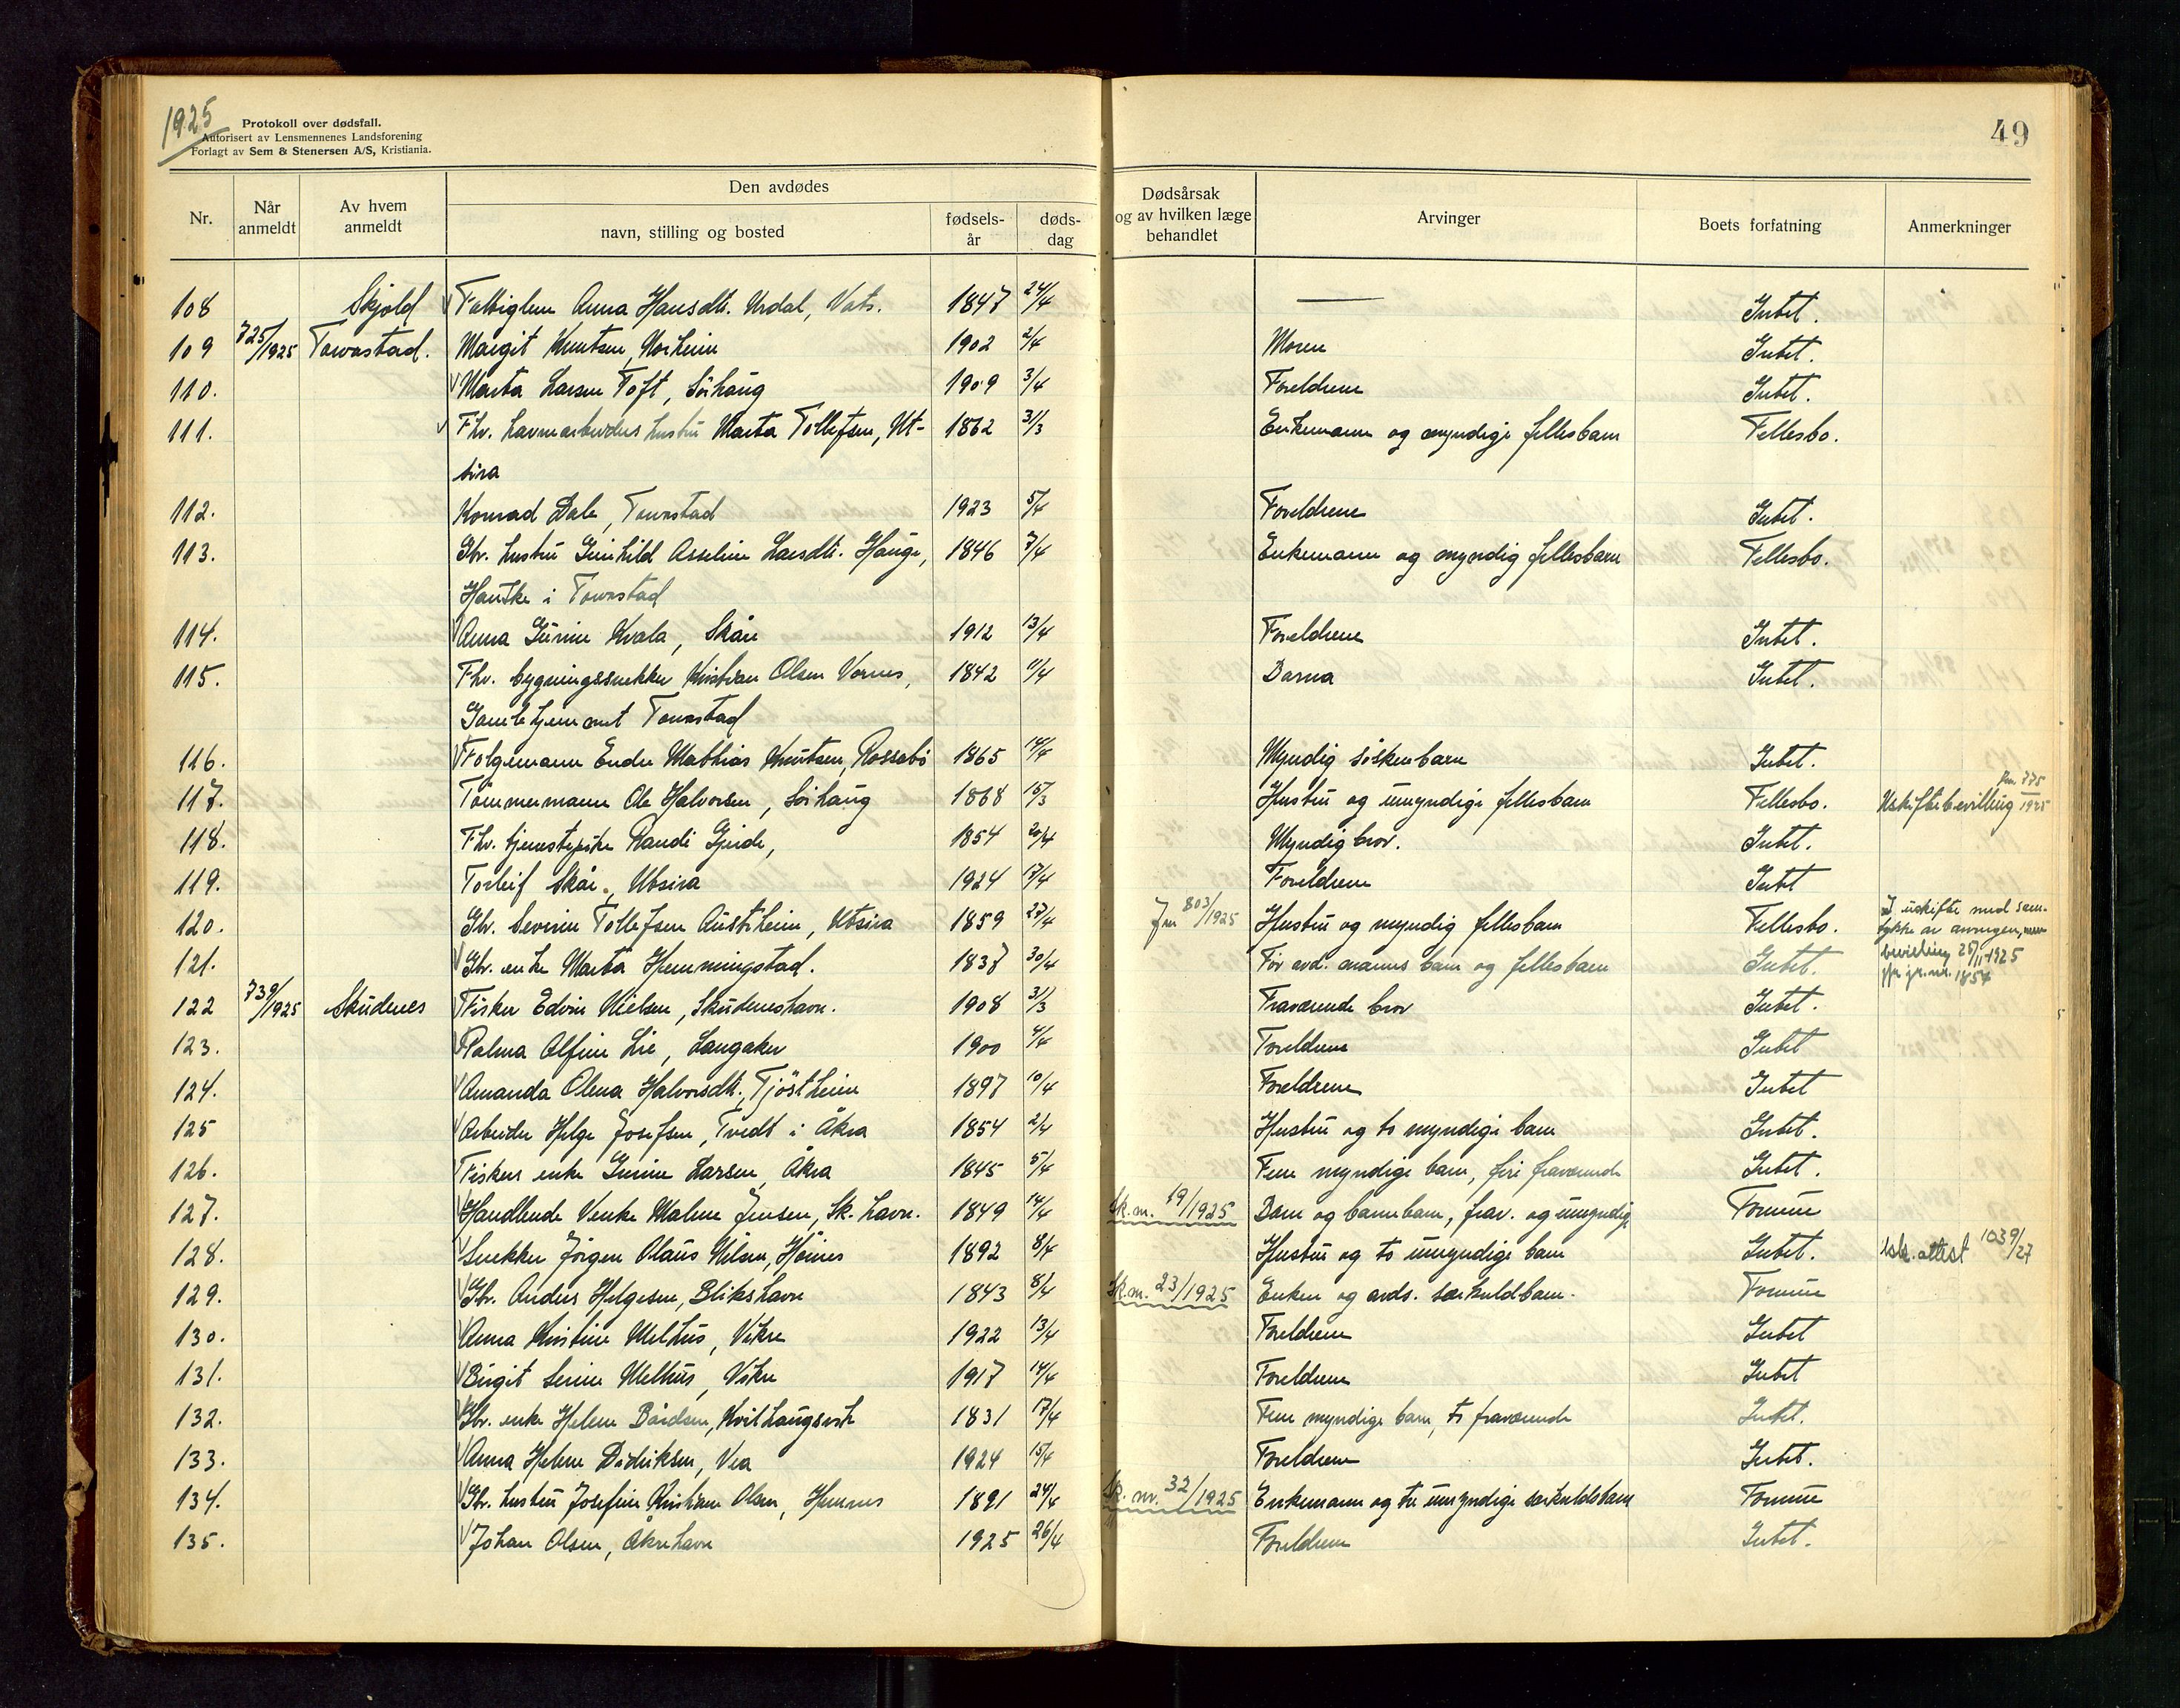 1925
Protokoll over dødsfall.
Autorisert av Lensmennenes Landsforening
Forlagt av Sem & Stenersen A/S, Kristiania.
49
Nr. Når anmeldt Av hvem anmeldt Den avdødes navn, stilling og bosted fødsels-år døds-dag Dødsårsak og av hvilken læge behandlet Arvinger Boets forfatning Anmerkninger
108 Skjold Fattiglem Anna Hansdtr. Urdal, Vats. 1847 24/4 — Intet.
109 725/1925 Torvastad. Margit Knutsen, Norheim 1902 2/4 Moren Intet.
110. Marta Larsen Toft, Sörhaug 1909 3/4 Foreldrene Intet.
111. Fhv. havnearbeiders hustru Marta Tollefsen, Ut- 1862 31/3 Enkemann og myndige fellesbarn Fellesbo.
sira
112. Konrad Dale, Torvastad 1923 5/4 Foreldrene Intet.
113. Gbr. hustru Gunhild Asseline Larsdtr. Hauge, 1846 7/4 Enkemann og myndig fellesbarn Fellesbo.
Hauske i Torvastad
114. Anna Gurine Kvala, Skåre 1912 13/4 Foreldrene Intet.
115. Fhv. bygningssnekker Kristian Olsen Vornes, 1842 11/4 Barna Intet.
Gamlehjemmet Torvastad
116. Folgemann Endre Mathias Knutsen, Rossabö 1865 14/4 Myndig söskenbarn Intet.
117. Tömmermann Ole Halvorsen, Sörhaug 1868 15/3 Hustru og umyndige fellesbarn Fellesbo. Uskiftebevilling 775/1925
118. Fhv. tjenestepike Randi Gjerde, 1854 20/4 Myndig bror. Intet.
119. Torleif Skår, Utsira 1924 17/4 Foreldrene Intet
120. Gbr. Severin Tollefsen Austrheim, Utsira 1859 27/4 Jnr 803/1925 Hustru og myndig fellesbarn Fellesbo. I uskifte med sam-
tykke av arvingen, men
121. Gbr. enke Marta Hemmingstad. 1837 30/4 Før avd. manns barn og fellesbarn Intet. bevilling 25/11-1925
jfr. jr.nr. 1854
122 739/1925 Skudenes Fisker Edvin Nielsen, Skudeneshavn. 1908 31/3 Fraværende bror Intet.
123. Palma Alfine Lie, Langaker 1900 4/4 Foreldrene Intet
124. Amanda Olena Halvorsdtr., Tjöstheim 1897 10/4 Foreldrene Intet
125 Arbeider Helge Josefsen, Tvedt i Åkra 1854 2/4 Hustru og to myndige barn Intet.
126. Fiskers enke Gurine Larsen, Åkra 1845 5/4 Fem myndige barn, fire fraværende Intet.
127. Handlende Venke Malene Jensen, Sk. havn. 1849 14/4 Sk.nr. 19/1925 Barn og barnebarn, frav. og umyndige Formue
128. Snekker Jörgen Olaus Nilsen, Höines 1892 8/4 Hustru og to umyndige barn Intet. Usk. attest 1039/27
129. Gbr. Anders Helgesen, Blikshavn 1843 8/4 Sk.nr. 23/1925 Enken og avds. særkuldbarn. Formue
130. Anna Kristine Melhus, Vikre 1922 13/4 Foreldrene Intet
131. Birgit Serine Melhus, Vikre 1917 14/4 Foreldrene Intet
132. Gbr. enke Helene Bårdsen, Kvilhaugsvik 1831 17/4 Fem myndige barn, to fraværende Intet.
133. Anna Helene Didriksen, Vea 1924 15/4 Foreldrene Intet.
134. Gbr. hustru Josefine Kristiane Olsen, Hemnes 1891 24/4 Sk. nr. 32/1925 Enkemann og tre umyndige særkuldsbarn Formue
135. Johan Olsen, Åkrehavn 1925 26/4 Foreldrene Intet.